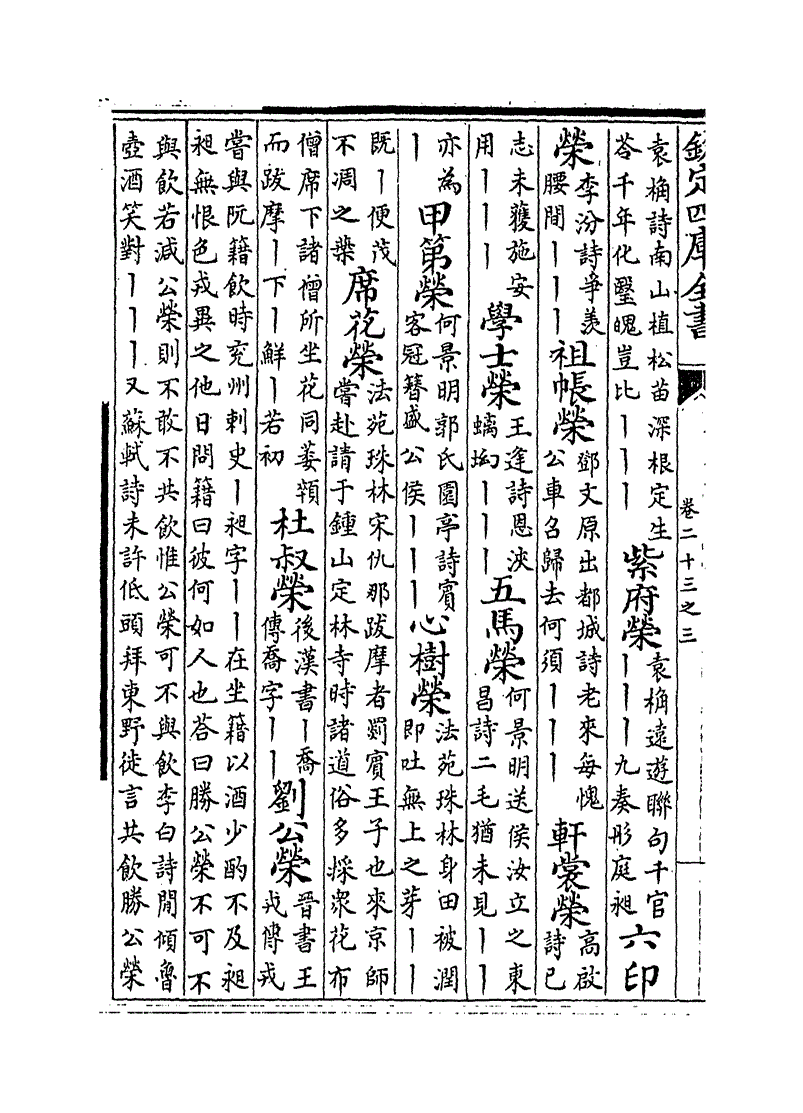 欽定四庫全書 卷二十三之三
袁桷詩南山植松苗深根定生苓千年化璧魄豈比丨丨丨紫府榮袁桷遠遊聯句千官丨丨丨九奏彤庭昶六印
榮李汾詩爭羨腰間丨丨丨祖帳榮鄧文原出都城詩老來每愧公車召歸去何須丨丨丨軒裳榮高啟詩已
志未獲施安用丨丨丨學士榮王逢詩恩浹螭坳丨丨丨五馬榮何景明送侯汝立之東昌詩二毛猶未見丨丨
亦為丨甲第榮何景明郭氏園亭詩賓客冠簪盛公侯丨丨丨心樹榮法苑珠林身田被潤即吐無上之芽丨丨
既丨便茂不凋之葉席花榮法苑珠林宋仇那跋摩者罽賓王子也來京師嘗赴請于鍾山定林寺時諸道俗多採衆花布
僧席下諸僧所坐花同萎顇而跋摩丨下丨鮮丨若初杜叔榮後漢書丨喬傳喬字丨丨劉公榮晉書王戎傳戎
嘗與阮籍飲時兗州刺史丨昶字丨丨在坐籍以酒少酌不及昶昶無恨色戎異之他日問籍曰彼何如人也荅曰勝公榮不可不
與飲若減公榮則不敢不共飲惟公榮可不與飲李白詩閒傾魯壺酒笑對丨丨丨又蘇軾詩未許低頭拜東野徒言共飲勝公榮